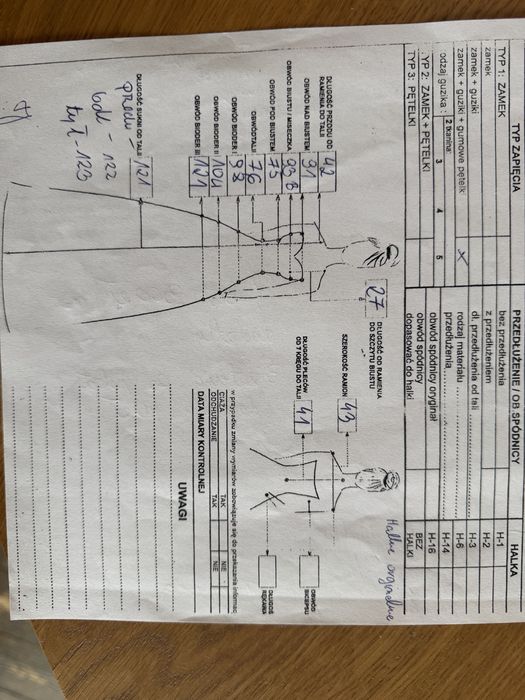 TYP ZAPIĘCIA
TYP 1: ZAMEK
zamek
zamek + guziki
zamek + guziki + gumowe pętelki x
rodzaj guzika: 2 tkanina 3 4 5
TYP 2: ZAMEK + PĘTELKI
TYP 3: PĘTELKI
PRZEDŁUŻENIE / OB SPÓDNICY
bez przedłużenia
z przedłużeniem
dł. przedłużenia od tali
rodzaj materiału
przedłużenia
obwód spódnicy oryginał
obwód spódnicy
dopasować do halki
HALKA
H-1
H-2
H-3
H-6
H-14
H-16
BEZ
HALKI
DŁUGOŚĆ PRZODU OD
RAMIENIA DO TALII 42
OBWÓD NAD BIUSTEM 91
OBWÓD BIUSTU / MISECZKA 93 B
OBWÓD POD BIUSTEM 75
OBWÓD TALII 76
OBWÓD BIODER I 98
OBWÓD BIODER II 104
OBWÓD BIODER III 121
DŁUGOŚĆ SUKNI OD TALII 121
przód -
bok - 122
tył - 123
27
DŁUGOŚĆ OD RAMIENIA
DO SZCZYTU BIUSTU
SZEROKOŚĆ RAMION 43
DŁUGOŚĆ PLECÓW
OD 7 KRĘGU DO TALII 41
OBWÓD
BICEPSU
DŁUGOŚĆ
RĘKAWA
w przypadku zmiany wymiarów zobowiązuje się do przekazania informac
CIĄŻA TAK NIE
ODCHUDZANIE TAK NIE
DATA MIARY KONTROLNEJ
UWAGI